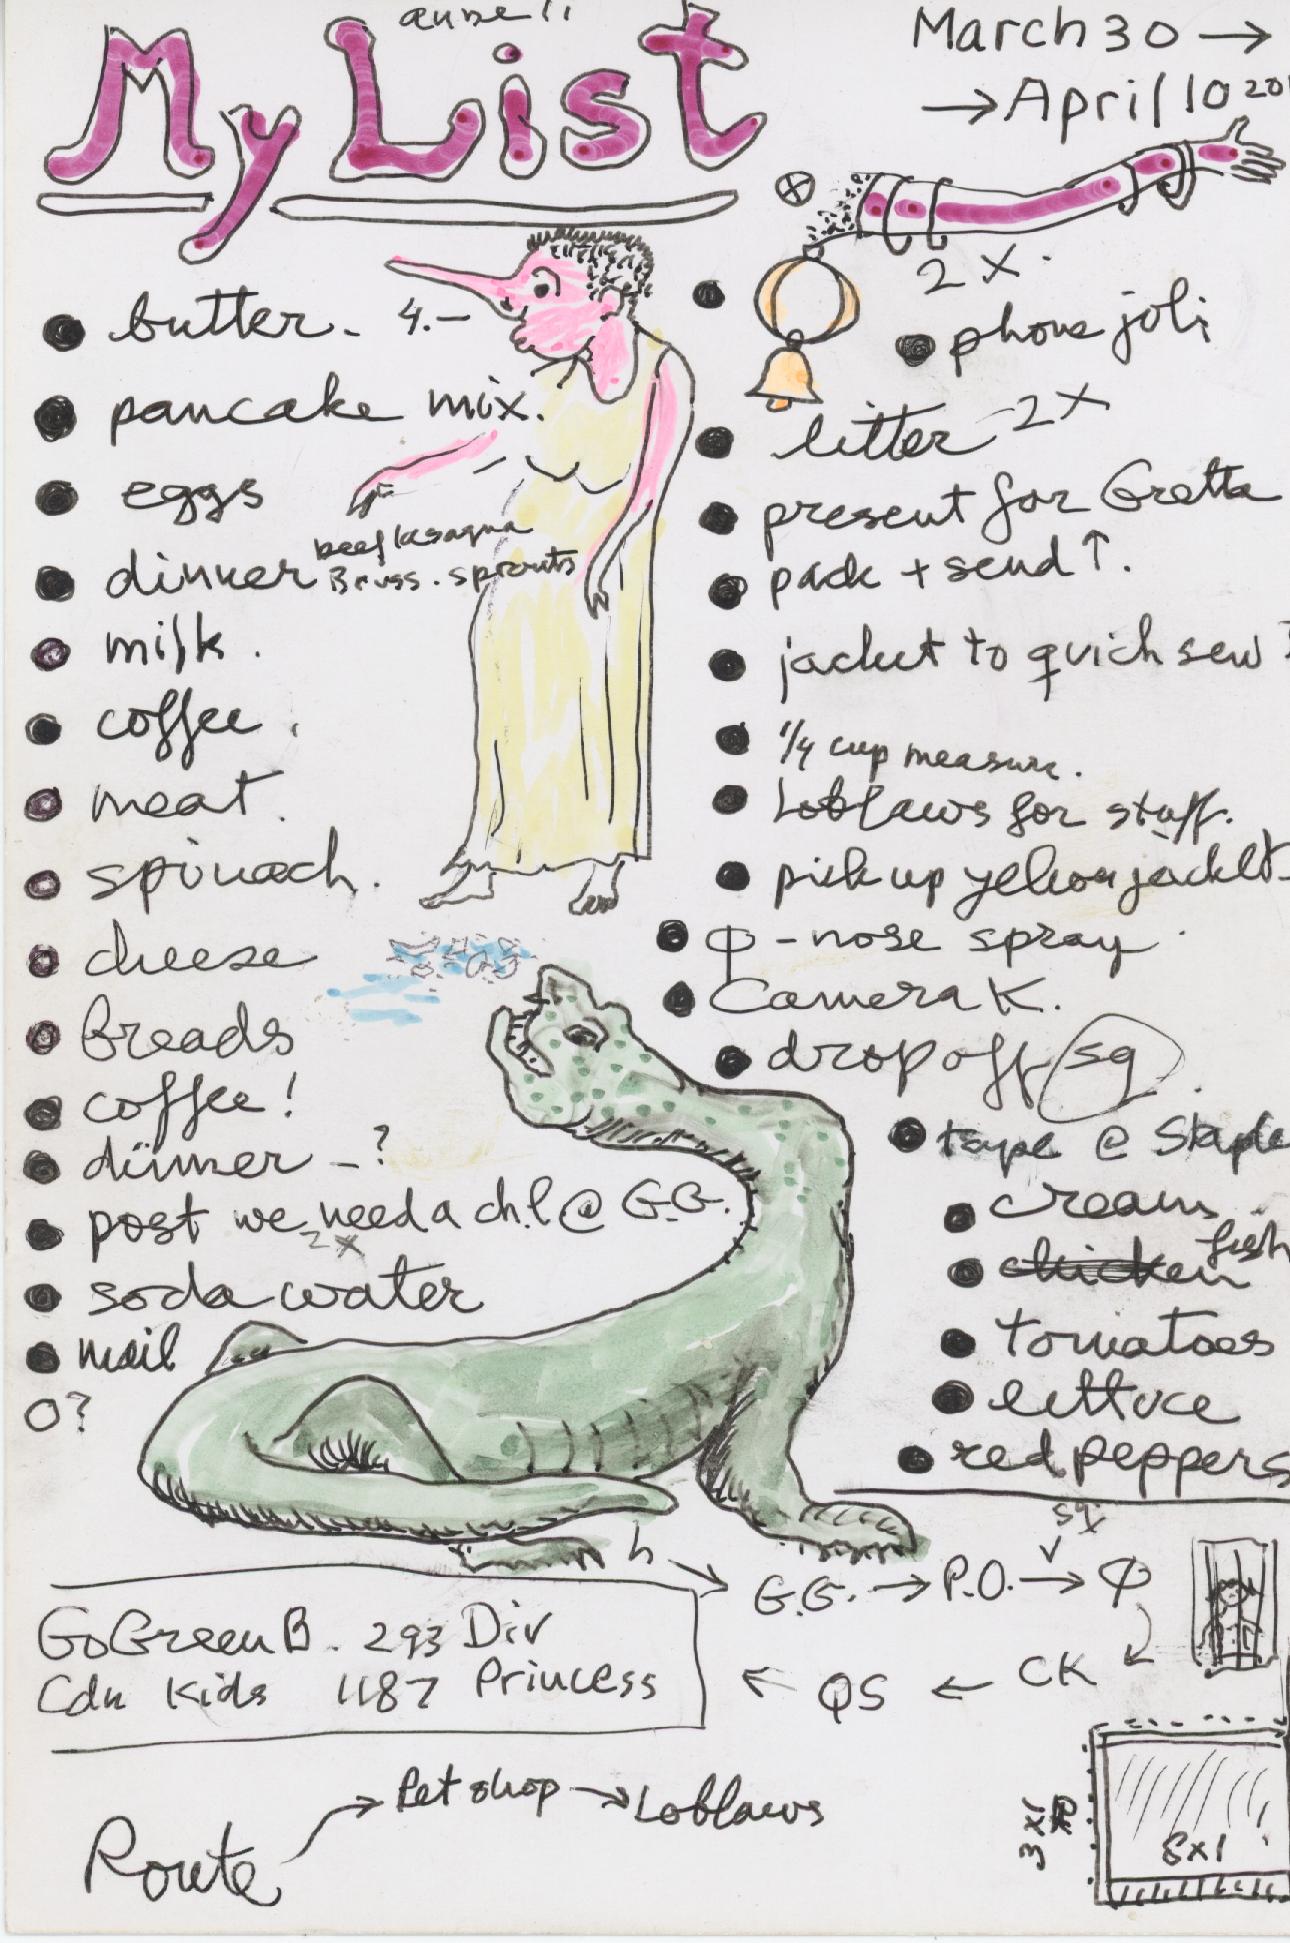 My List
March 30 →
→ April 10 20
2 x.
butter - 4.—
phone joli
pancake mix.
litter 2x
eggs
present for Gretta
dinner beef lasagna
Bruss. sprouts
pack + send ↑.
milk.
jacket to quick sew
coffee.
1/4 cup measure.
meat.
Loblaws for stuff.
spinach.
pick up yellow jacket
cheese
φ - nose spray
breads
Camera K.
coffee!
drop off sq
dinner - ?
tape @ Staple
post we need a ch.l @ G.G.
cream
2x
soda water
chicken fish
mail
tomatoes
O?
lettuce
red peppers
sq
h → G.G. → P.O. → φ
GoGreenB. 293 Div
Cdn Kids 1187 Princess
← QS ← CK
Route → Pet shop → Loblaws
3x1
8x1